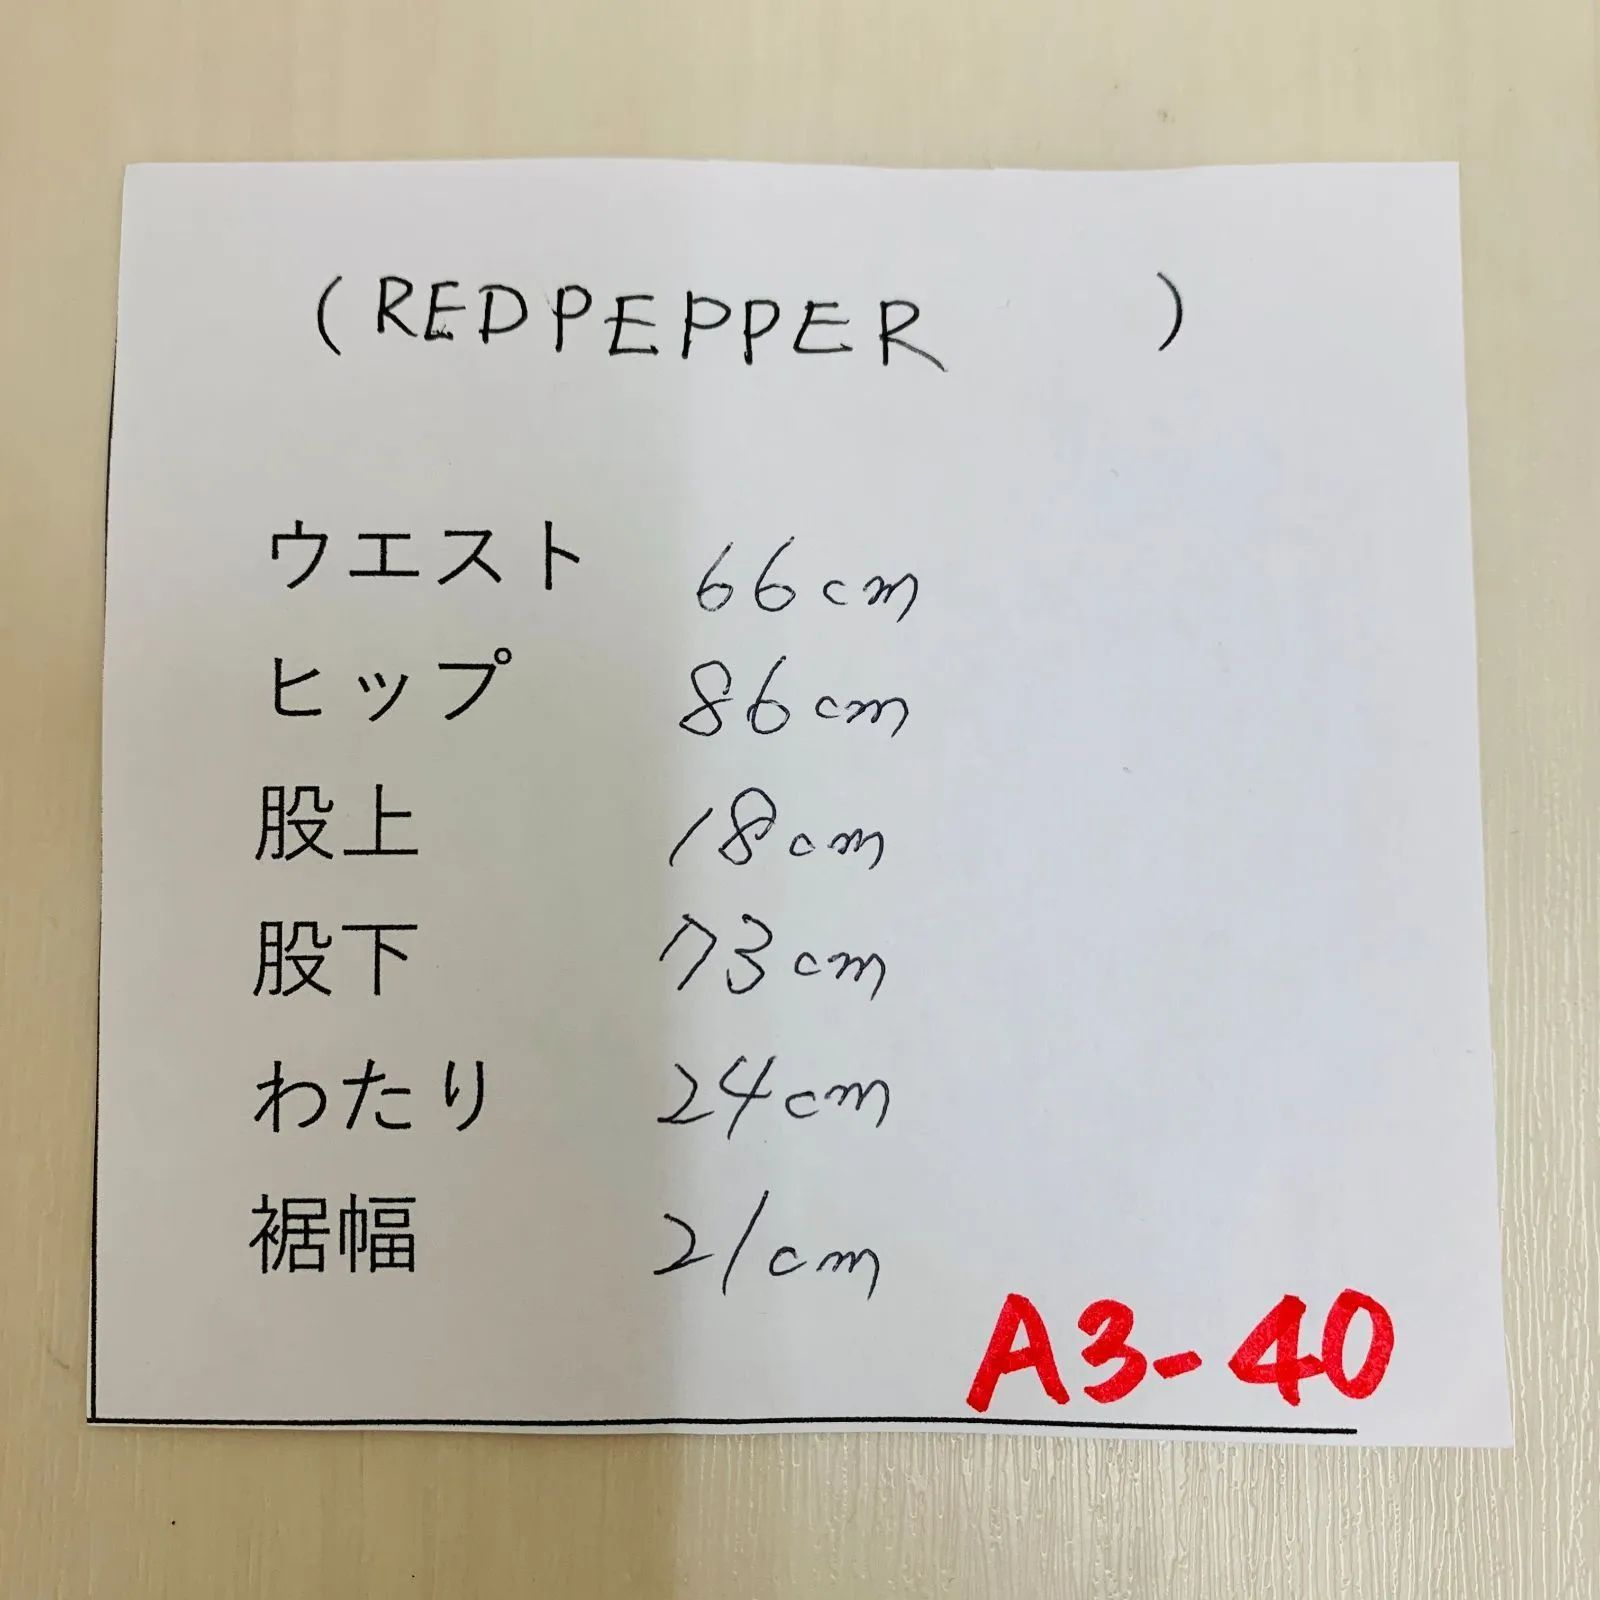 (REDPEPPER )
ウエスト 66cm
ヒップ 86cm
股上 18cm
股下 73cm
わたり 24cm
裾幅 21cm
A3-40